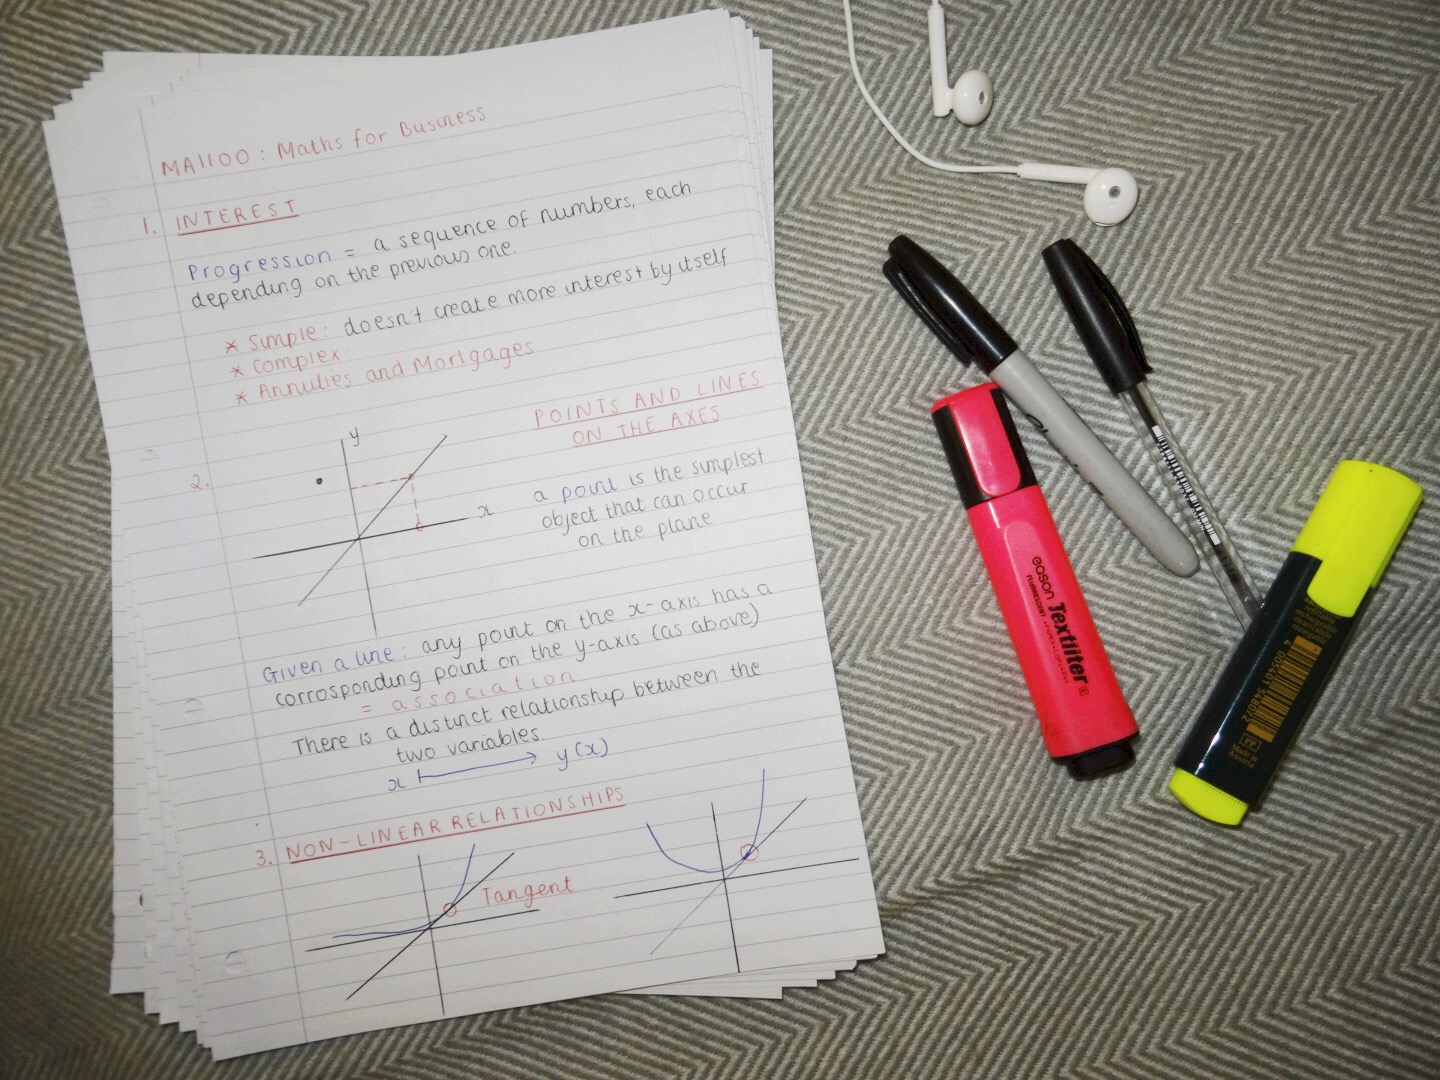 MA1100 : Maths for Business
1. INTEREST
Progression = a sequence of numbers, each
depending on the previous one.
* Simple: doesn't create more interest by itself
* Complex:
* Annulies and Mortgages
2.
y
x
POINTS AND LINES
ON THE AXES
a point is the simplest
object that can occur
on the plane
Given a line: any point on the x-axis has a
corrosponding point on the y-axis (as above)
= association
There is a distinct relationship between the
two variables
x ↦ y(x)
3. NON-LINEAR RELATIONSHIPS
Tangent
eason Textliter
FLUORESCENT
PP
Made in
Austria